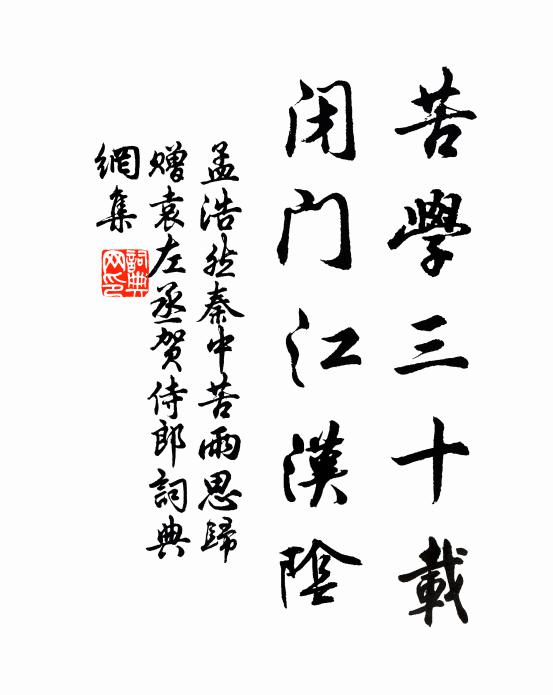 苦學三十載
闭门江漢陰
孟浩然秦中苦雨思歸
赠袁左丞贺侍郎詞典
網集
詞典
网印